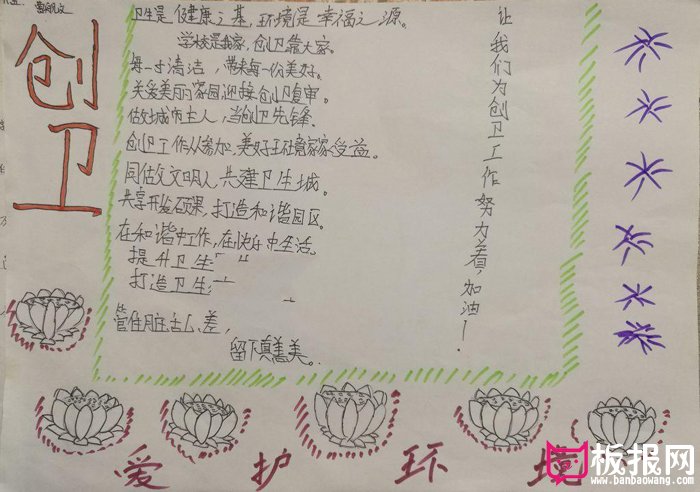 创卫
卫生是健康之基,环境是幸福之源。
学校是我家,创卫靠大家。
每一寸清洁,带来每一份美好。
关爱美丽家园,迎接创卫复审。
做城市主人,当创卫先锋.
创卫工作众参加,美好环境家家受益。
同做文文明人,共建卫生城。
共享开发硕果,打造和谐园区。
在和谐中工作,在快乐中生活。
提升卫生
打造卫生
管住脏、乱、差,
留下真善美。
让我们为创卫工作努力着,加油!
爱护环境
板报网
www.banbaowang.com